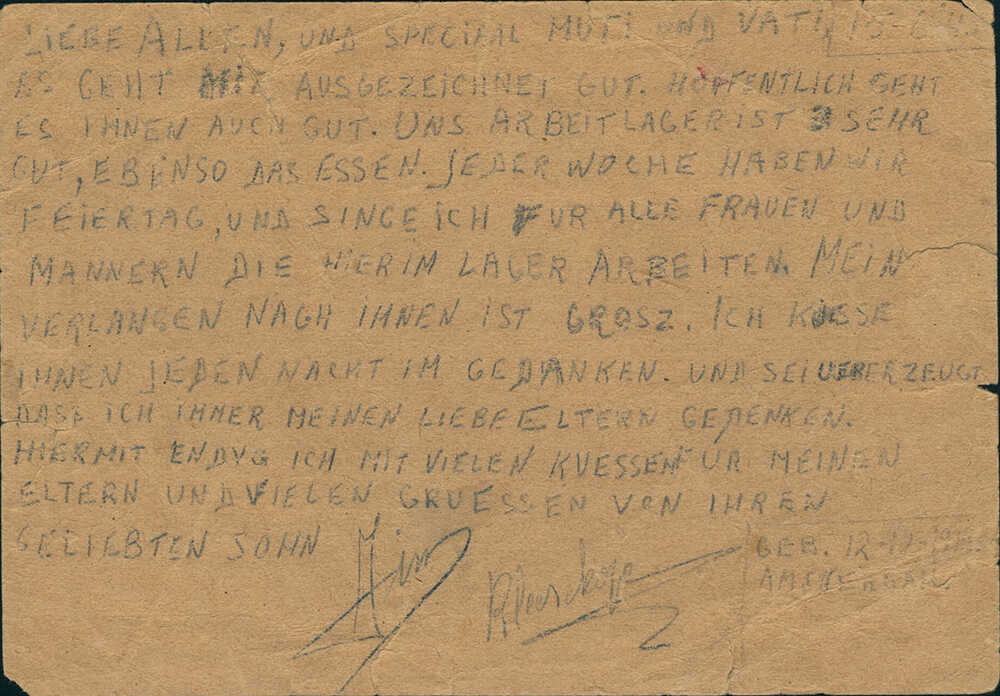 LIEBE ALLEN, UND SPECIAAL MUTI UND VATI,
ES GEHT MIR AUSGEZEICHNET GUT. HOFFENTLICH GEHT
ES IHNEN AUCH GUT. UNS ARBEITLAGER IST SEHR
GUT, EBENSO DAS ESSEN. JEDER WOCHE HABEN WIR
FEIERTAG, UND SINGE ICH FUR ALLE FRAUEN UND
MANNERN DIE HIER IM LAGER ARBEITEN. MEIN
VERLANGEN NACH IHNEN IST GROSZ. ICH KUESSE
IHNEN JEDEN NACHT IM GEDANKEN. UND SEI UEBERZEUGT
DASS ICH IMMER MEINEN LIEBE ELTERN GEDENKEN.
HIERMIT ENDYG ICH MIT VIELEN KUESSEN FUR MEINEN
ELTERN UND VIELEN GRUESSEN VON IHREN
GELIEBTEN SOHN
GEB. 12-11-